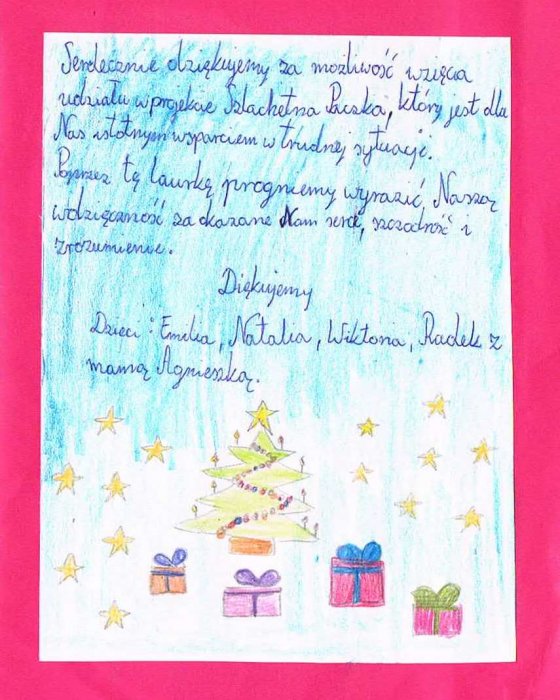 Serdecznie dziękujemy za możliwość wzięcia
udziału w projekcie Szlachetna Paczka, który jest dla
Nas istotnym wsparciem w trudnej sytuacji.
Poprzez tę laurkę pragniemy wyrazić, Naszą
wdzięczność za okazane Nam serce, szczodrość i
zrozumienie.
Diękujemy
Dzieci: Emilia, Natalia, Wiktoria, Radek z
mamą Agnieszką.